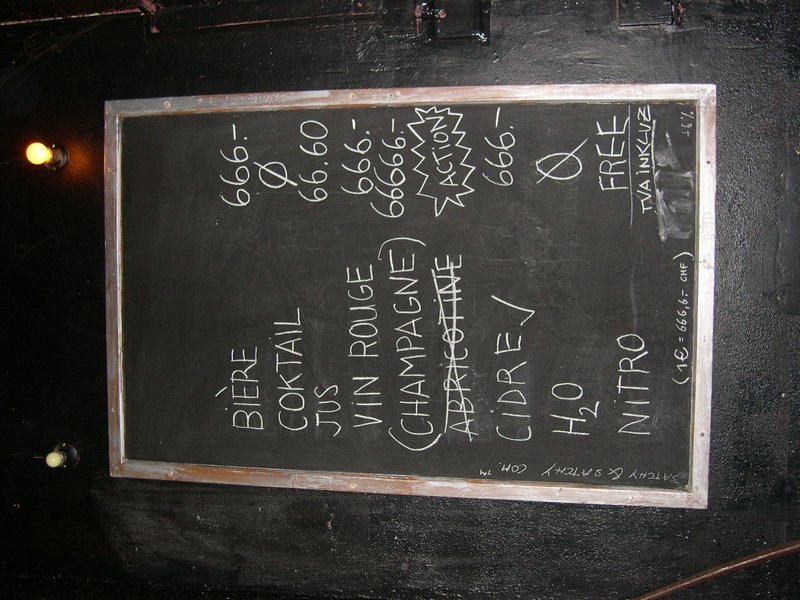 BIÈRE 666.-
COKTAIL Ø
JUS 66.60
VIN ROUGE 666.-
(CHAMPAGNE) 66666.-
ABRICOTINE ACTION
CIDRE √ 666.-
H2O Ø
NITRO FREE
TVA INKLUZ
(1€ = 666,6.- CHF) +6%
SATCHY & SATCHY COM.™